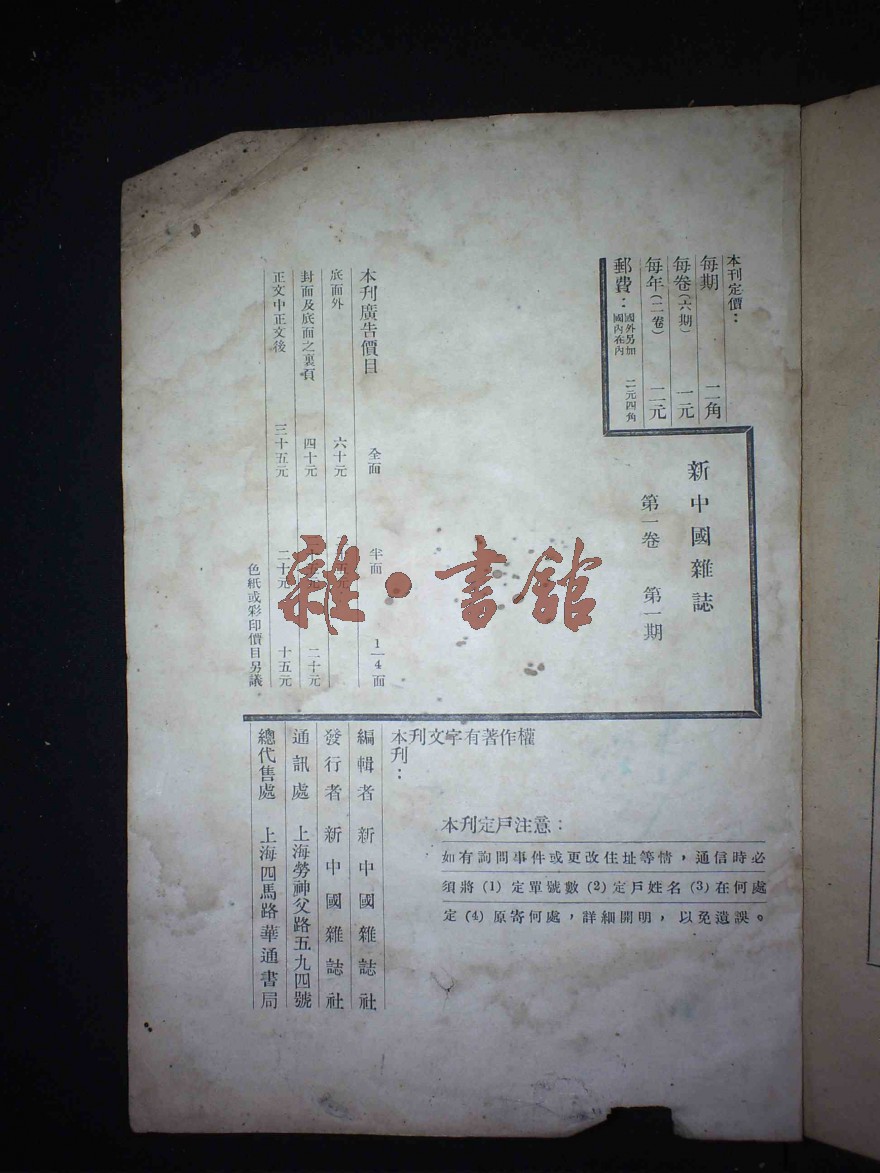 本刊定價：
每期 二角
每卷（六期） 一元
每年（二卷） 二元
郵費：國外另加 二元四角
國內在內
新中國雜誌
第一卷 第一期
本刊廣告價目 全面 半面 1/4面
底面外 六十元
封面及底面之裏頁 四十元 二十元
正文中正文後 三十五元 二十元 十五元
色紙或彩印價目另議
雜·書館
本刊文字有著作權
本刊：
編輯者 新中國雜誌社
發行者 新中國雜誌社
通訊處 上海勞神父路五九四號
總代售處 上海四馬路華通書局
本刊定戶注意：
如有詢問事件或更改住址等情，通信時必
須將 (1) 定單號數 (2) 定戶姓名 (3) 在何處
定 (4) 原寄何處，詳細開明，以免遺誤。